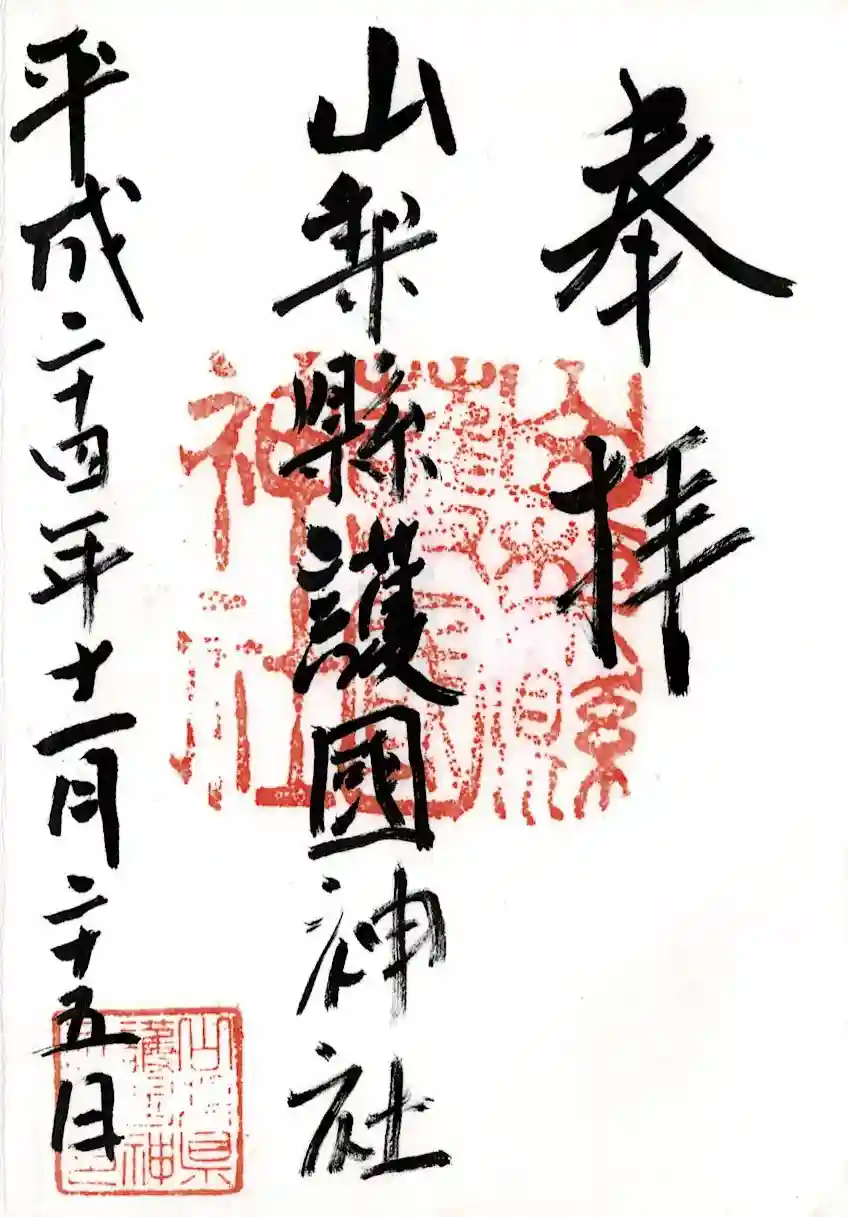 奉拝
山梨縣護國神社
平成二十四年十一月二十五日
山梨縣
護國
神社